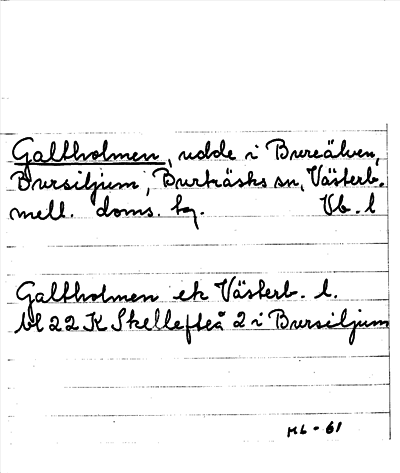 Galtholmen, udde i Bureälven,
Bursiljum, Burträsks sn, Västerb.
mell. doms. tg. Vb. l
Galtholmen ek Västerb. l.
bl 22 K Skellefteå 2 i Bursiljum
ML - 61